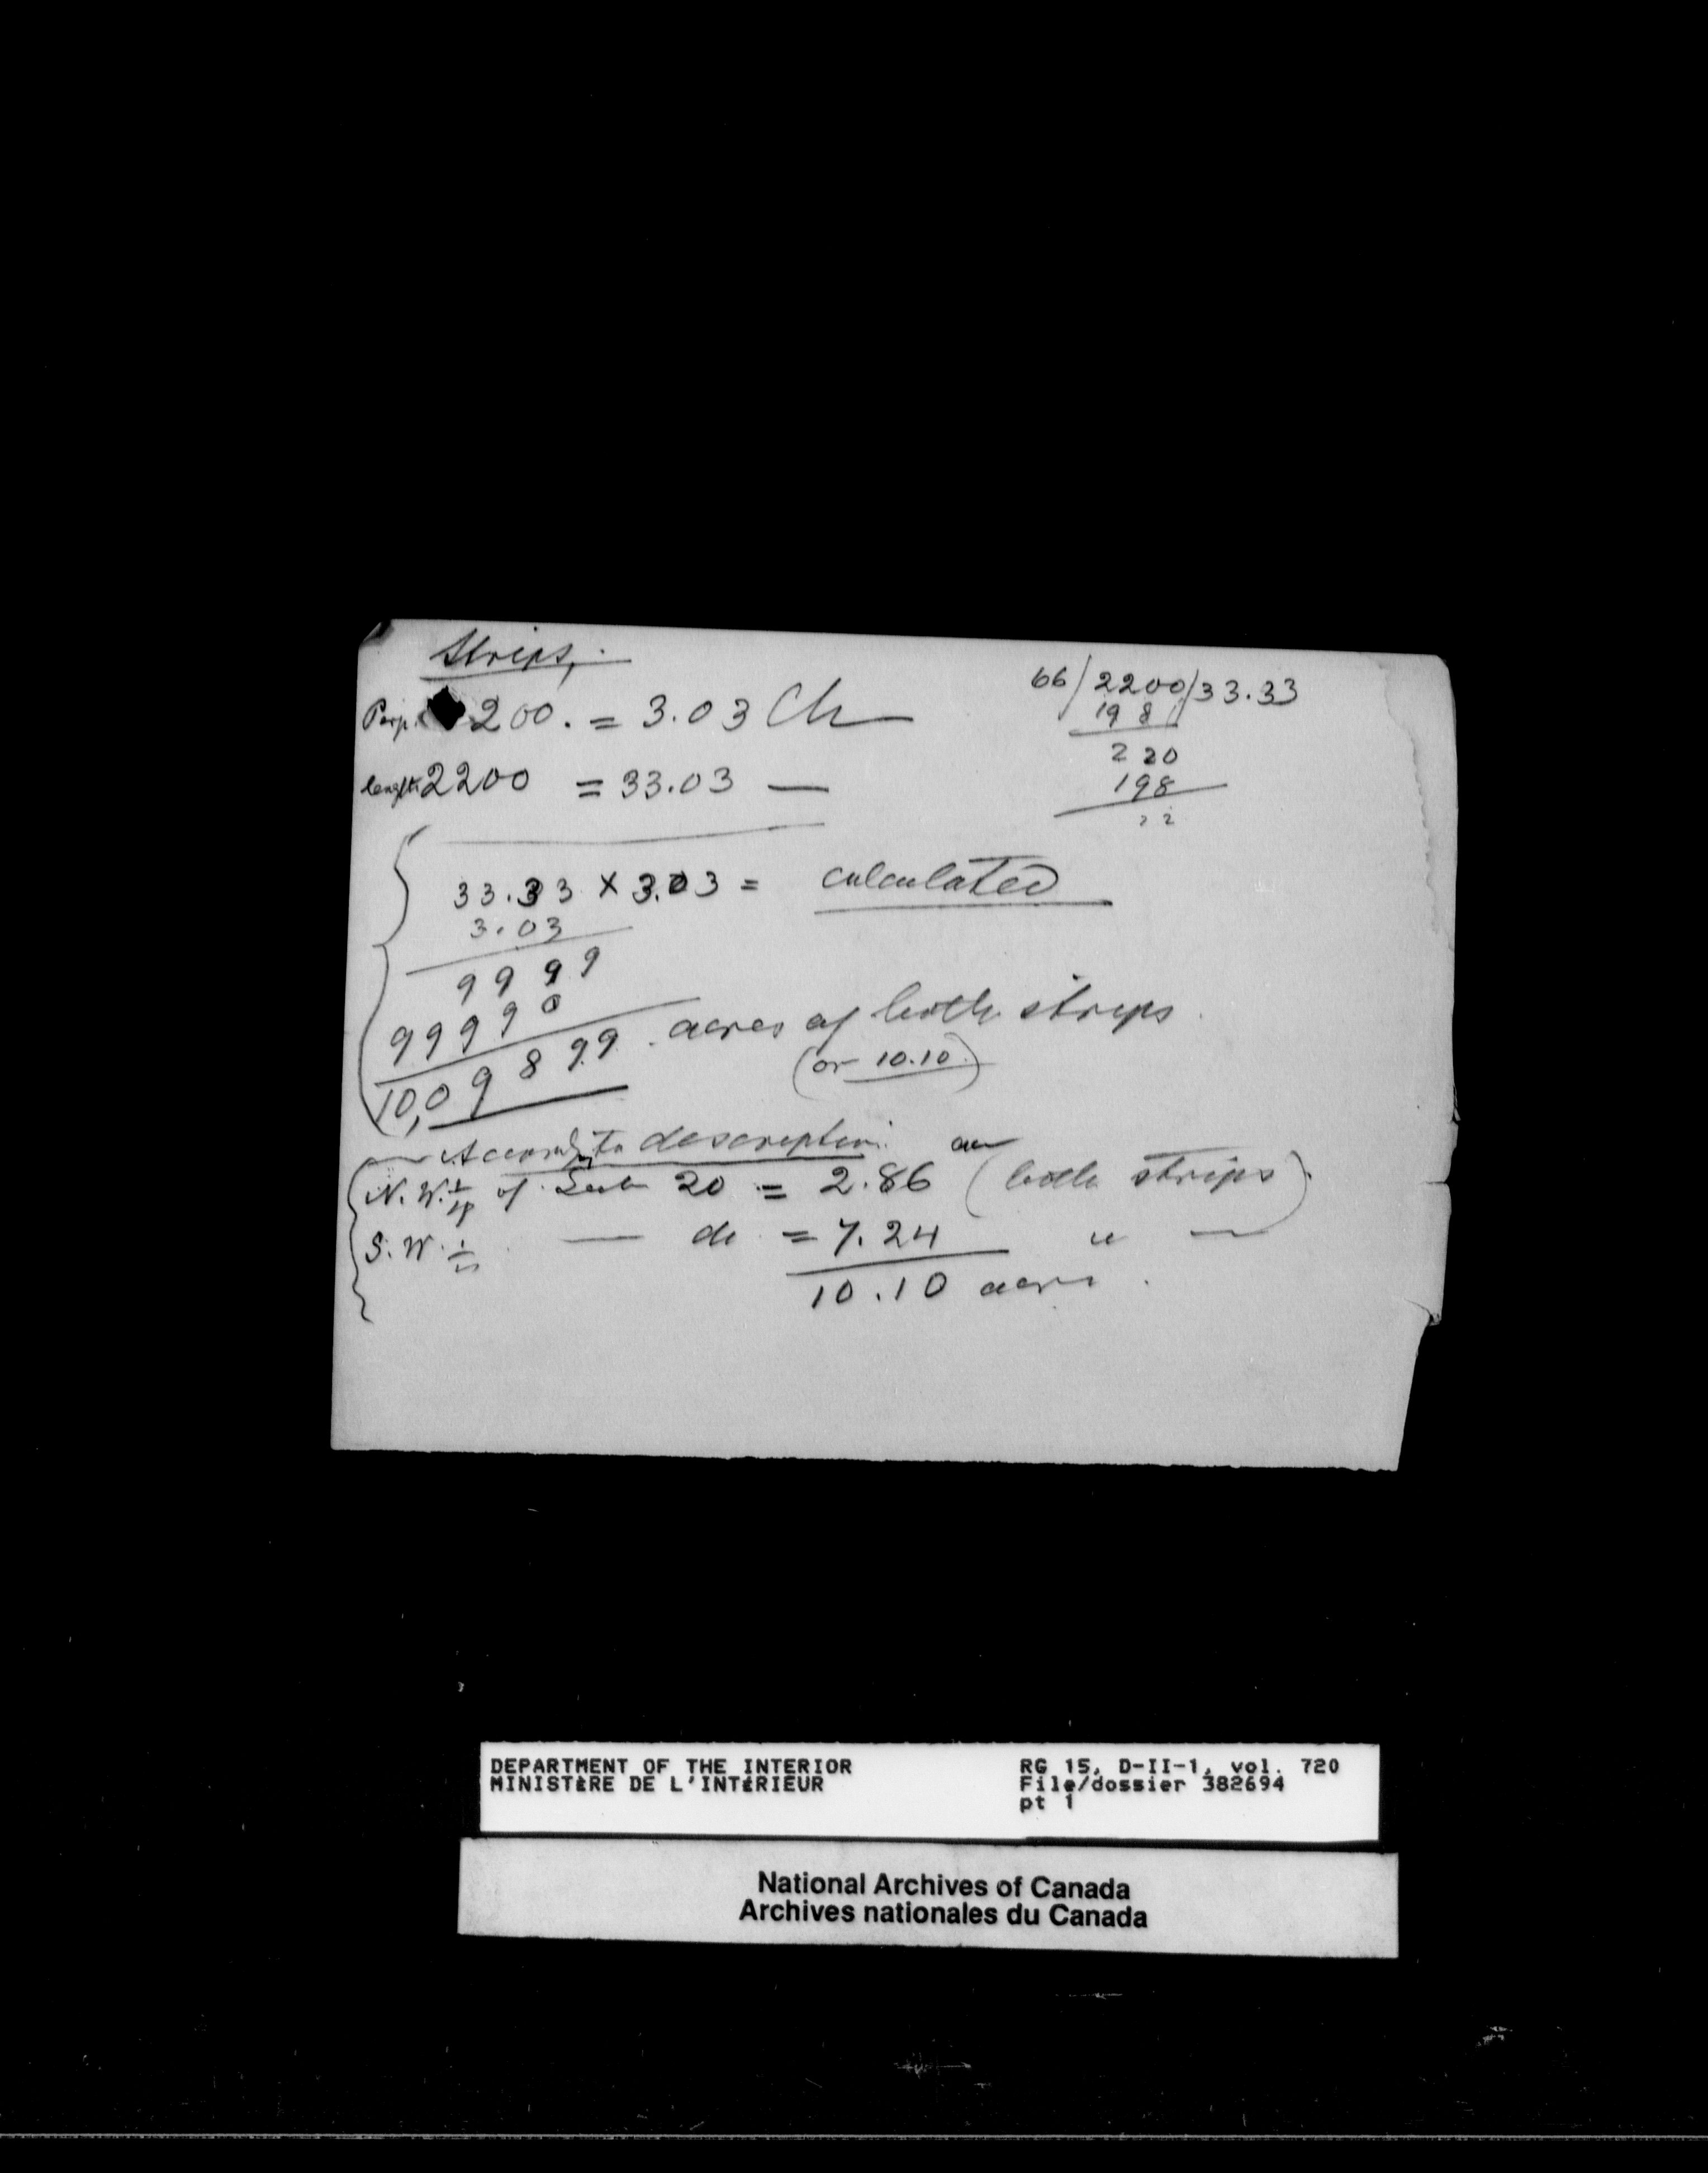 Strips,
Perp. 200. = 3.03 Ch
length 2200 = 33.03 —
66/2200/33.33
198
220
198
22
33.33 x 3.03 = calculated
3.03
9999
99990
10,09899. acres of both strips
(or 10.10)
According to description
N. W. 1/4 of Sect 20 = 2.86 (both strips)
S. W. 1/4 — do = 7.24 " —
10.10 acres.
DEPARTMENT OF THE INTERIOR
MINISTÈRE DE L'INTÉRIEUR
RG 15, D-II-1, vol. 720
File/dossier 382694
pt 1
National Archives of Canada
Archives nationales du Canada